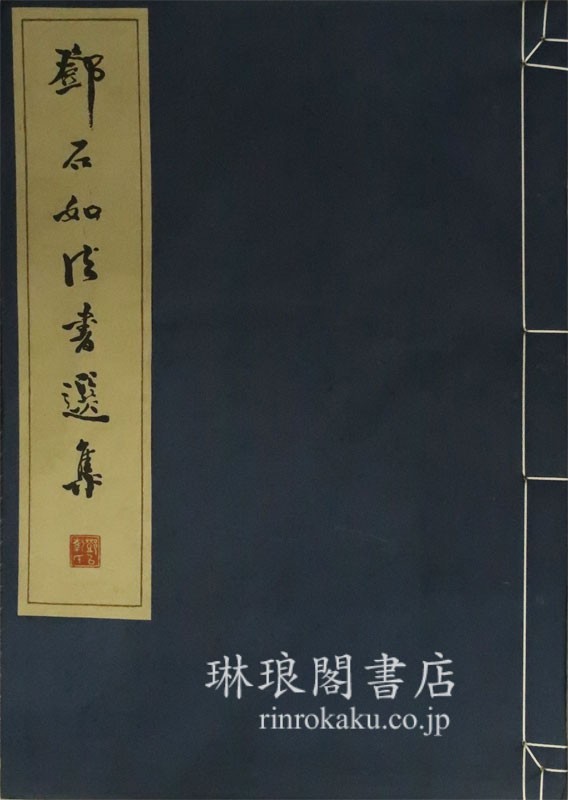 鄧石如法書選集
琳琅閣書店
rinrokaku.co.jp